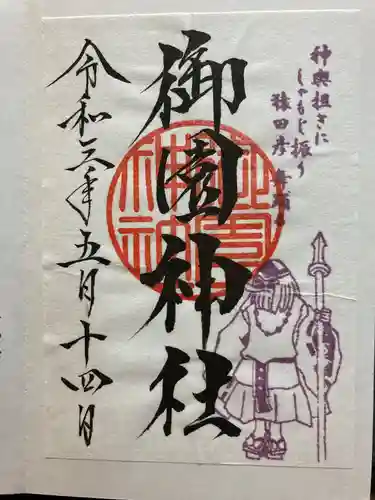 神輿担ぎに
しゃもじ振り
猿田彦舞踊る
御園神社
令和三年五月十四日